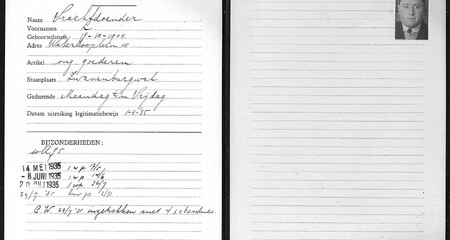 Naam Vrachtdoender
Voornamen Z.
Geboortedatum 9-10-1904
Adres Waterlooplein 10
Artikel ong. goederen
Staanplaats Zwanenburgwal
Gedurende Maandag t/m Vrijdag
Datum uitreiking legitimatiebewijs 1-4-35
BIJZONDERHEDEN:
14 MEI 1935 1 w.p.
-8 JUNI 1935 1 w.p.
20 JULI 1935 1 w.p.
29/7 '35
C.W. 29/7 ingetrokken met